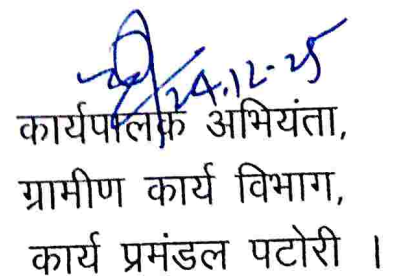 24.12.25
कार्यपालक अभियंता,
ग्रामीण कार्य विभाग,
कार्य प्रमंडल पटोरी ।